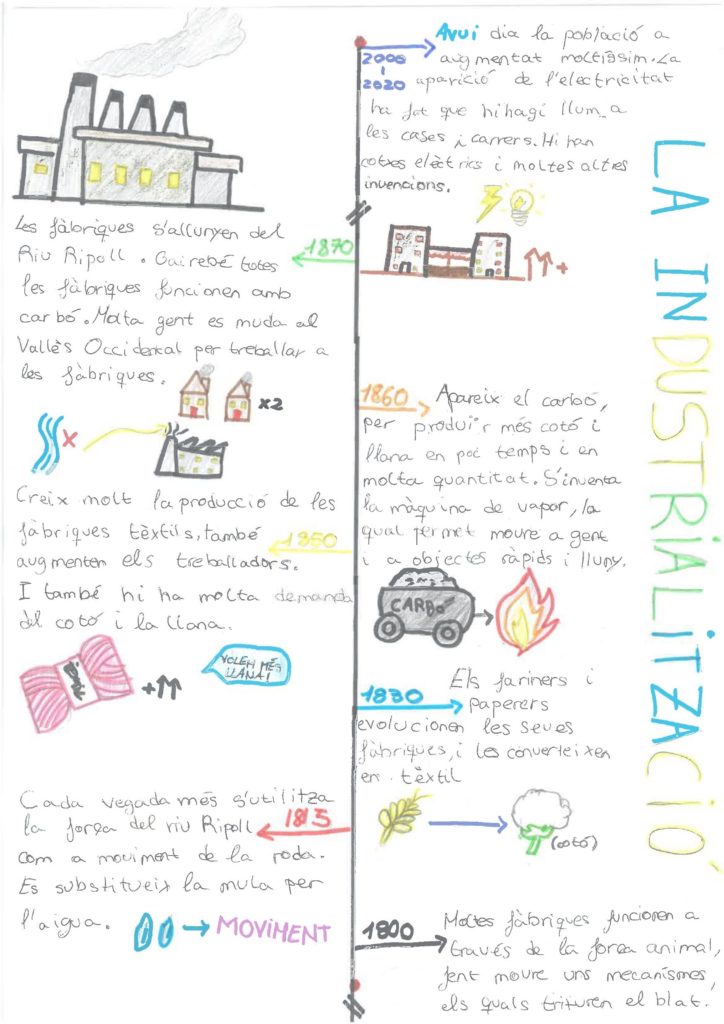 LA INDUSTRIALITZACIÓ
2000
-
2020
Avui dia la població a
augmentat moltíssim. La
aparició de l'electricitat
ha fet que hihagi llum a
les cases i carrers. Hi han
cotxes elèctrics i moltes altres
invencions.
+
1870
Les fàbriques s'allunyen del
Riu Ripoll. Gairebé totes
les fàbriques funcionen amb
carbó. Molta gent es muda al
Vallès Occidental per treballar a
les fàbriques.
x2
x
1860
Apareix el carbó,
per produir més cotó i
llana en poc temps i en
molta quantitat. S'inventa
la màquina de vapor, la
qual permet moure a gent
i a objectes ràpids i lluny.
CARBÓ
1850
Creix molt la producció de les
fàbriques tèxtils. també
augmenten els treballadors.
I també hi ha molta demanda
del cotó i la llana.
+
VOLEM MÉS
LLANA!
1830
Els fariners i
paperers
evolucionen les seves
fàbriques, i les converteixen
en tèxtil
(cotó)
1815
Cada vegada més s'utilitza
la força del riu Ripoll
com a moviment de la roda.
Es substitueix la mula per
l'aigua.
MOVIMENT
1800
Moltes fàbriques funcionen a
través de la força animal,
fent moure uns mecanismes,
els quals trituren el blat.